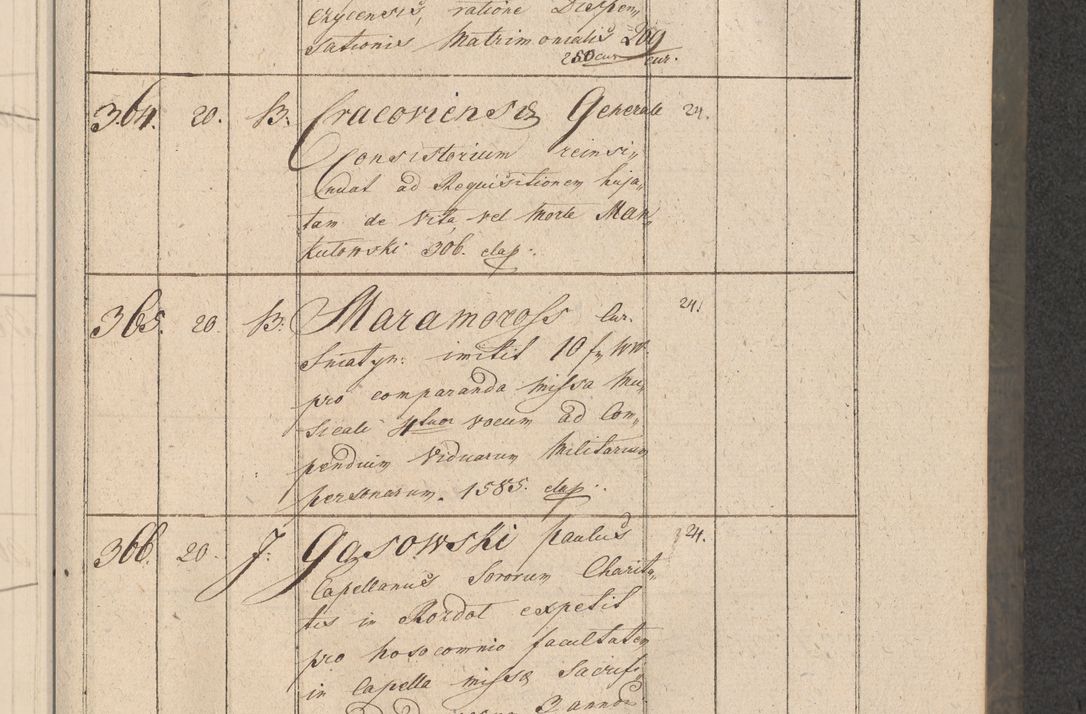 ratione Dispen„
sationis Matrimonialis 269
250 cur cur.
364. 20. B. Cracoviense Generale 24.
Consistorium reinsi„
nuat ad Requisitionem huja„
tam de Vita, vel Morte Man„
kutowski 306. elap.
365 20 B. Maramoross Cur. 24.
Sniatyn: imitit 10 fr WW.
pro comparanda missa Mu„
sicali 4tuor vocum ad Com„
pendium Viduarum Militarium
personarum. 1585. elap.
366. 20. J. Gąsowski Paulus 24.
Capellanus Sororum Charita„
tis in Rozdot expetit
pro hosocomnio facultatem
in Capella missæ Sacrifi„
3 annos